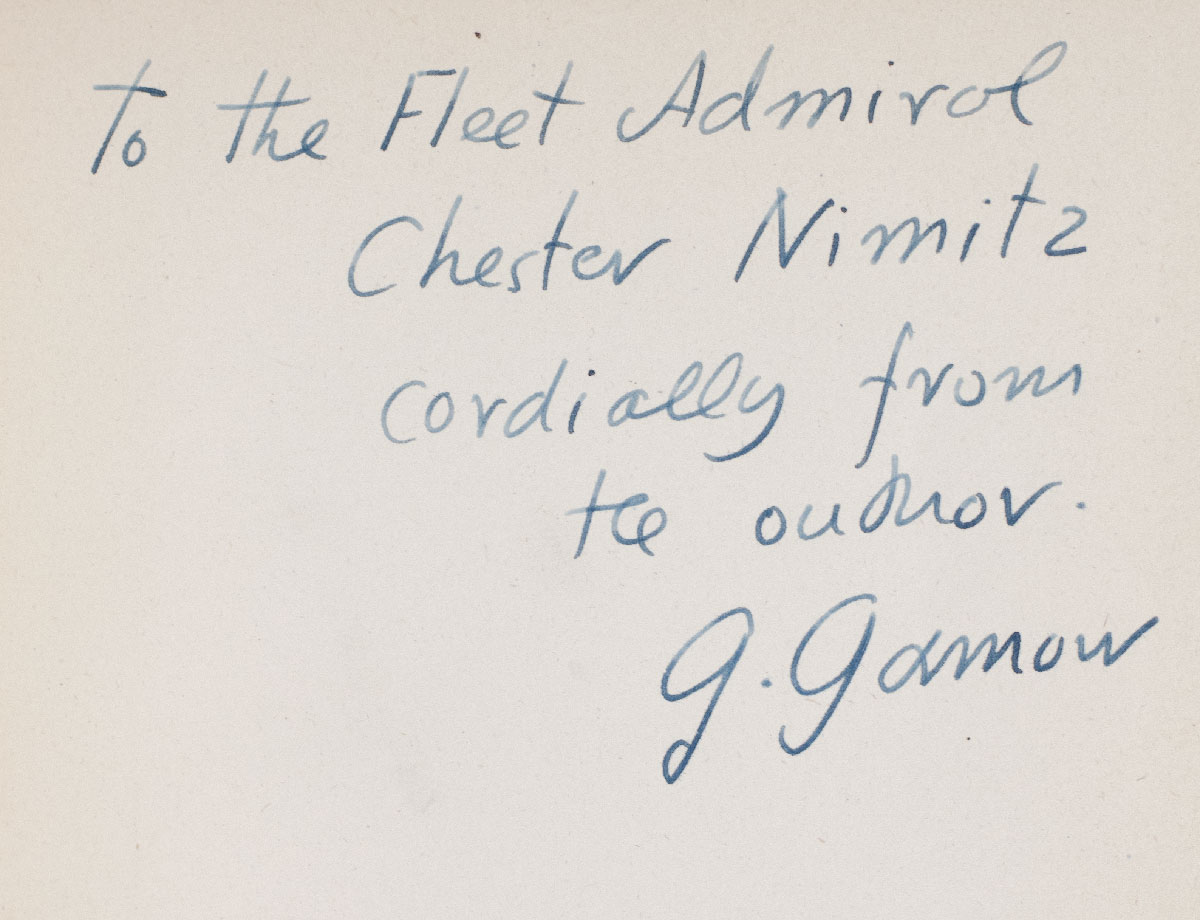 To the Fleet Admiral
Chester Nimitz
cordially from
the author.
G. Gamow